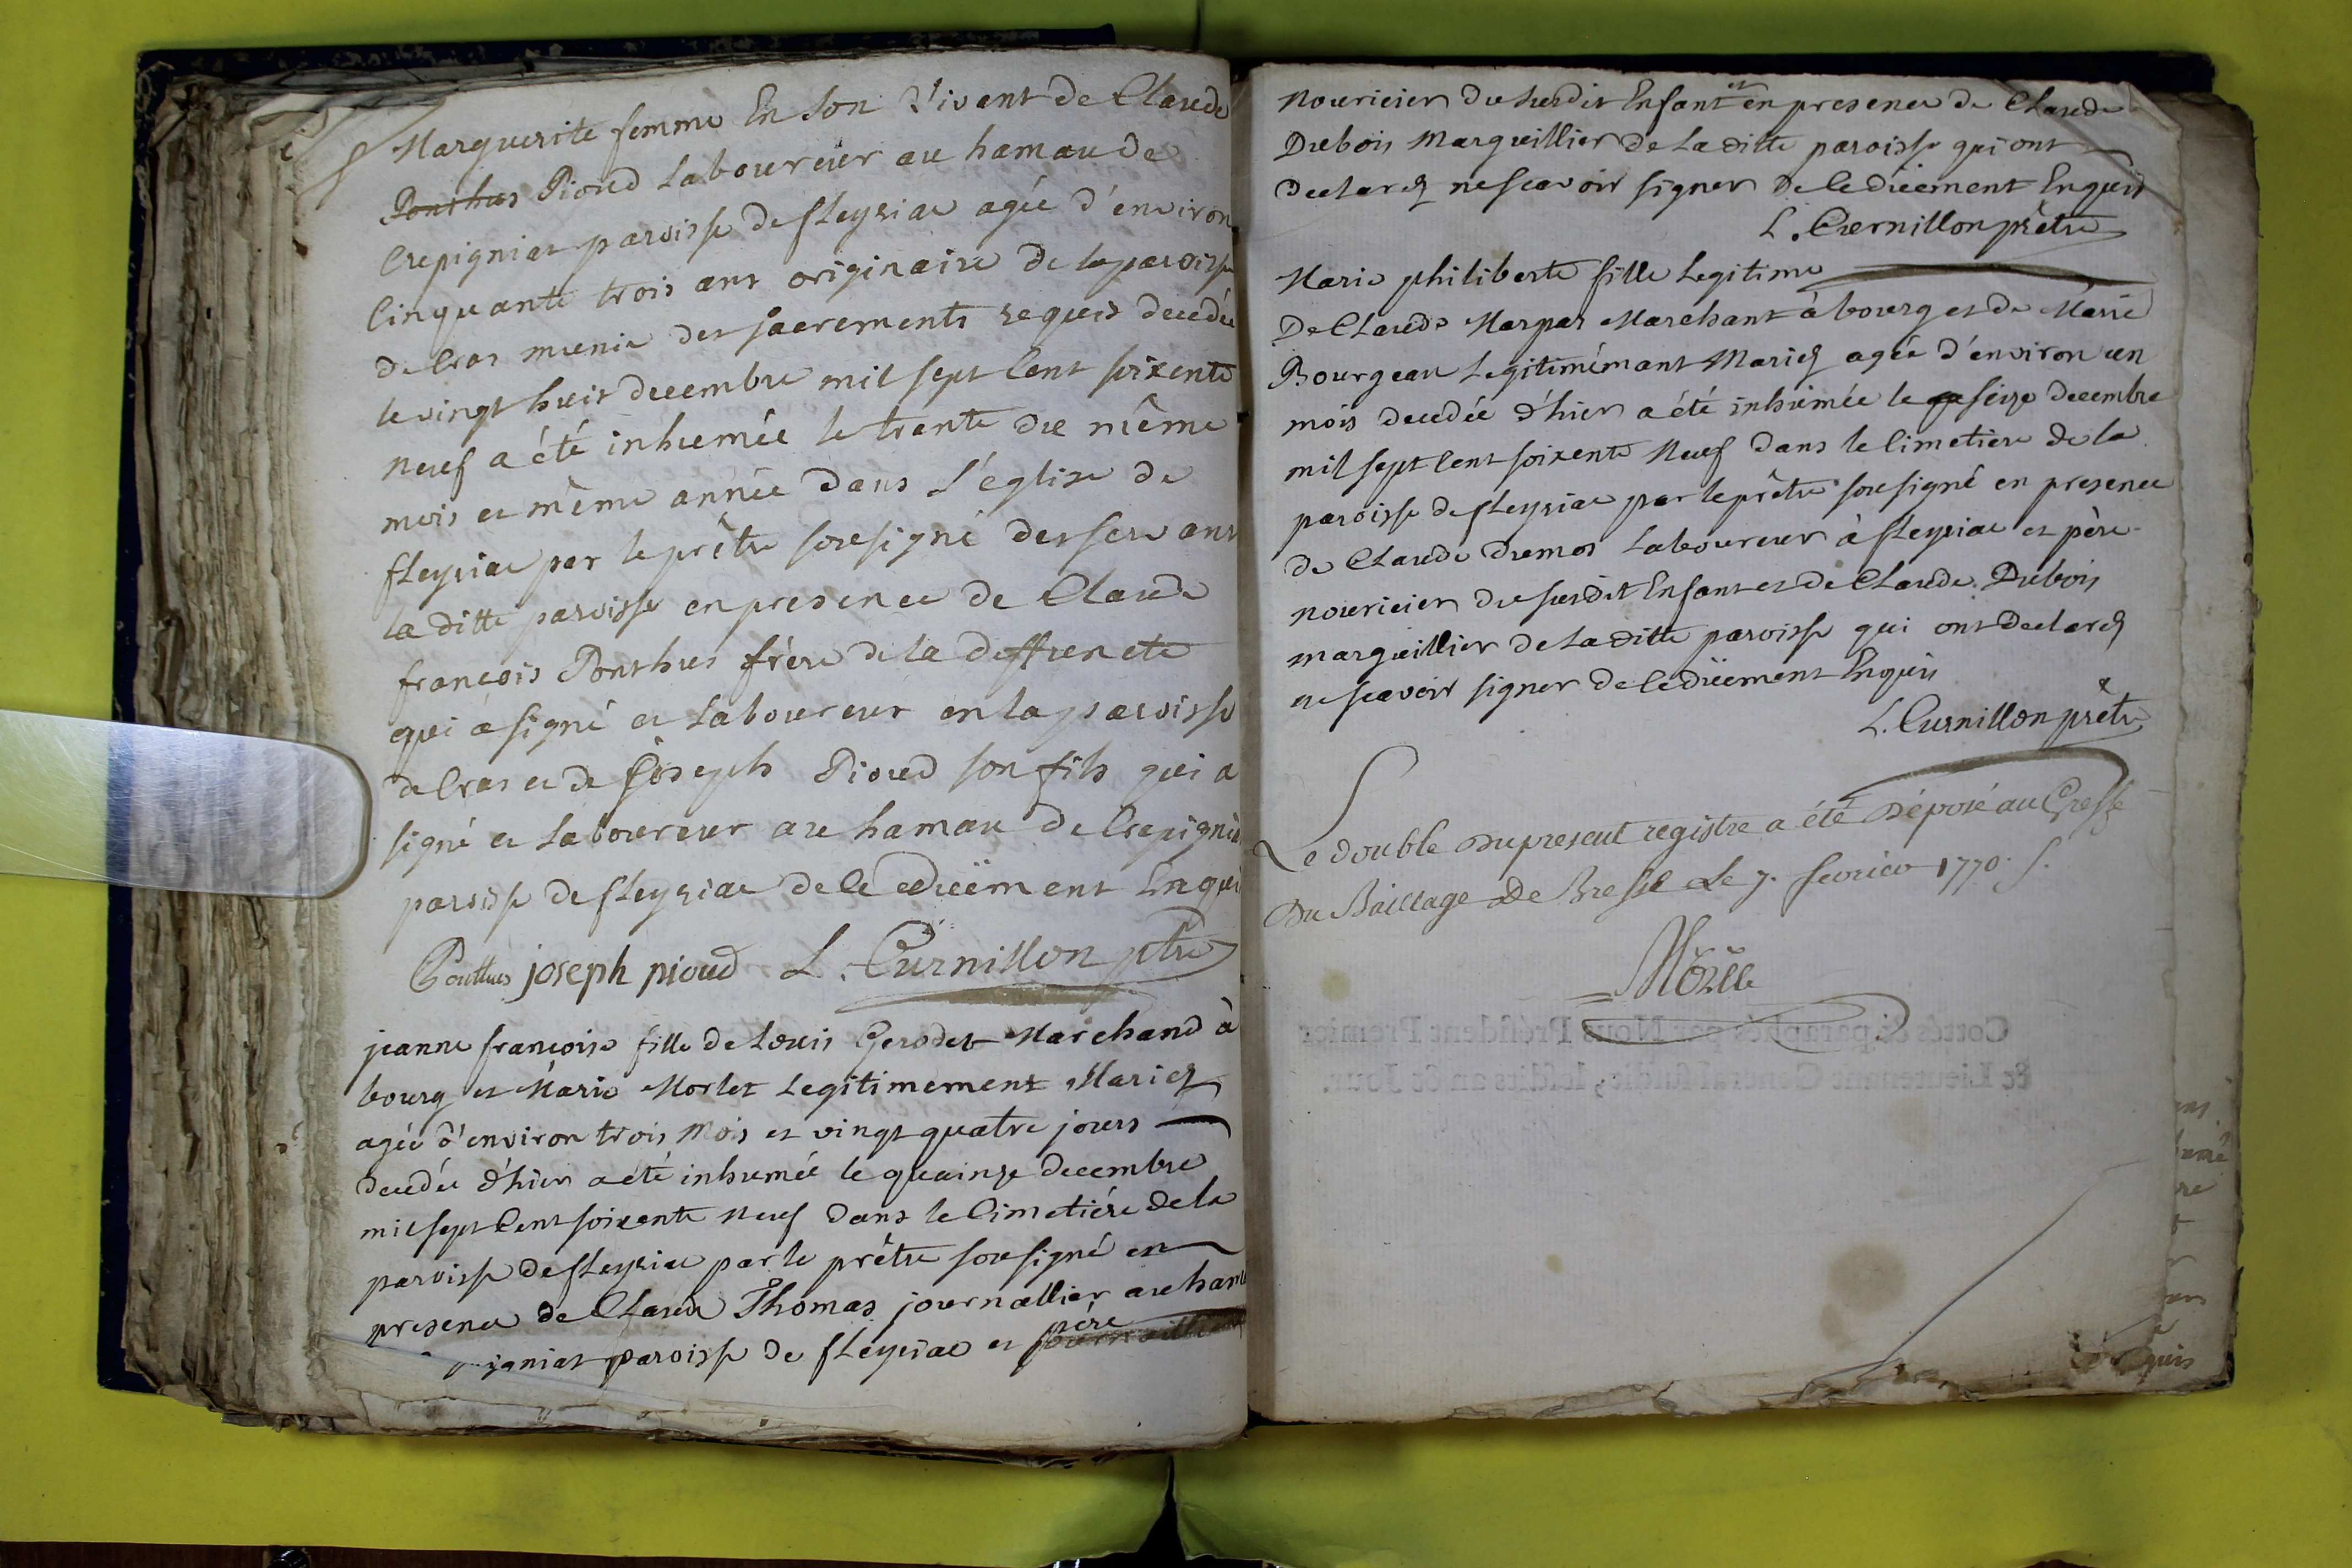 Marguerite femme En son Vivant de Claude
Ponthus Pioud Laboureur au hamau de
Crepigniat paroisse de fleyriac agée d'environ
Cinquante trois ans originaire de la paroisse
de Cras munie des sacrements requis decedée
le vingt huit decembre mil sept Cent soixente
neuf a été inhumée le trente du même
mois et même année dans L'église de
fleyriac par le prêtre sousigné desservant
la ditte paroisse en presence de Claude
françois Ponthus frère de la deffuncte
qui a signé et Laboureur en la paroisse
de Cras et de Joseph Pioud son fils qui a
signé et Laboureur au hamau de Crepignia
paroisse de fleyriac de ce dûëment Enqui
Ponthus joseph pioud L. Curnillon ptre
jeanne françoise fille de Louis Gerodet Marchand à
bourg et Marie Morlet Legitimement Mariez
agée d'environ trois Mois et vingt quatre jours
decedée d'hier a été inhumée le quainze decembre
mil sept Cent soixente neuf dans le Cimetière de la
paroisse de fleyriac par le prêtre sousigné en
presence de Claude Thomas journallier au hama
igniat paroisse de fleyriac et père
Nouricier du susdit Enfant et en presence de Claude
Dubois Marguillier de La ditte paroisse qui ont
declarez ne scavoir signer de ce dûëment Enquis
L. Curnillon prêtre
Marie philiberte fille Legitime
De Claude Marpar Marchant à bourg et de Marie
Bourgeau Legitimémant Mariez agée d'environ un
mois decedée d'hier a été inhumée le seize decembre
mil sept Cent soixente Neuf dans le Cimetiere de la
paroisse de fleyriac par le prêtre sousigné en presence
de Claude Dumos Laboureur à fleyriac et père
nouricier du susdit Enfant et de Claude Dubois
marguillier de La ditte paroisse qui ont declarez
ne scavoir signer de ce dûëment Enquis
L. Curnillon prêtre
Le double du present registre a été Déposé au Greffe
Du Baillage De Bresse Le 7. fevrier 1770
Cottés & paraphés par Nous Président Premier
& Lieutenant Général susdit, lesdits an & Jour.
quis